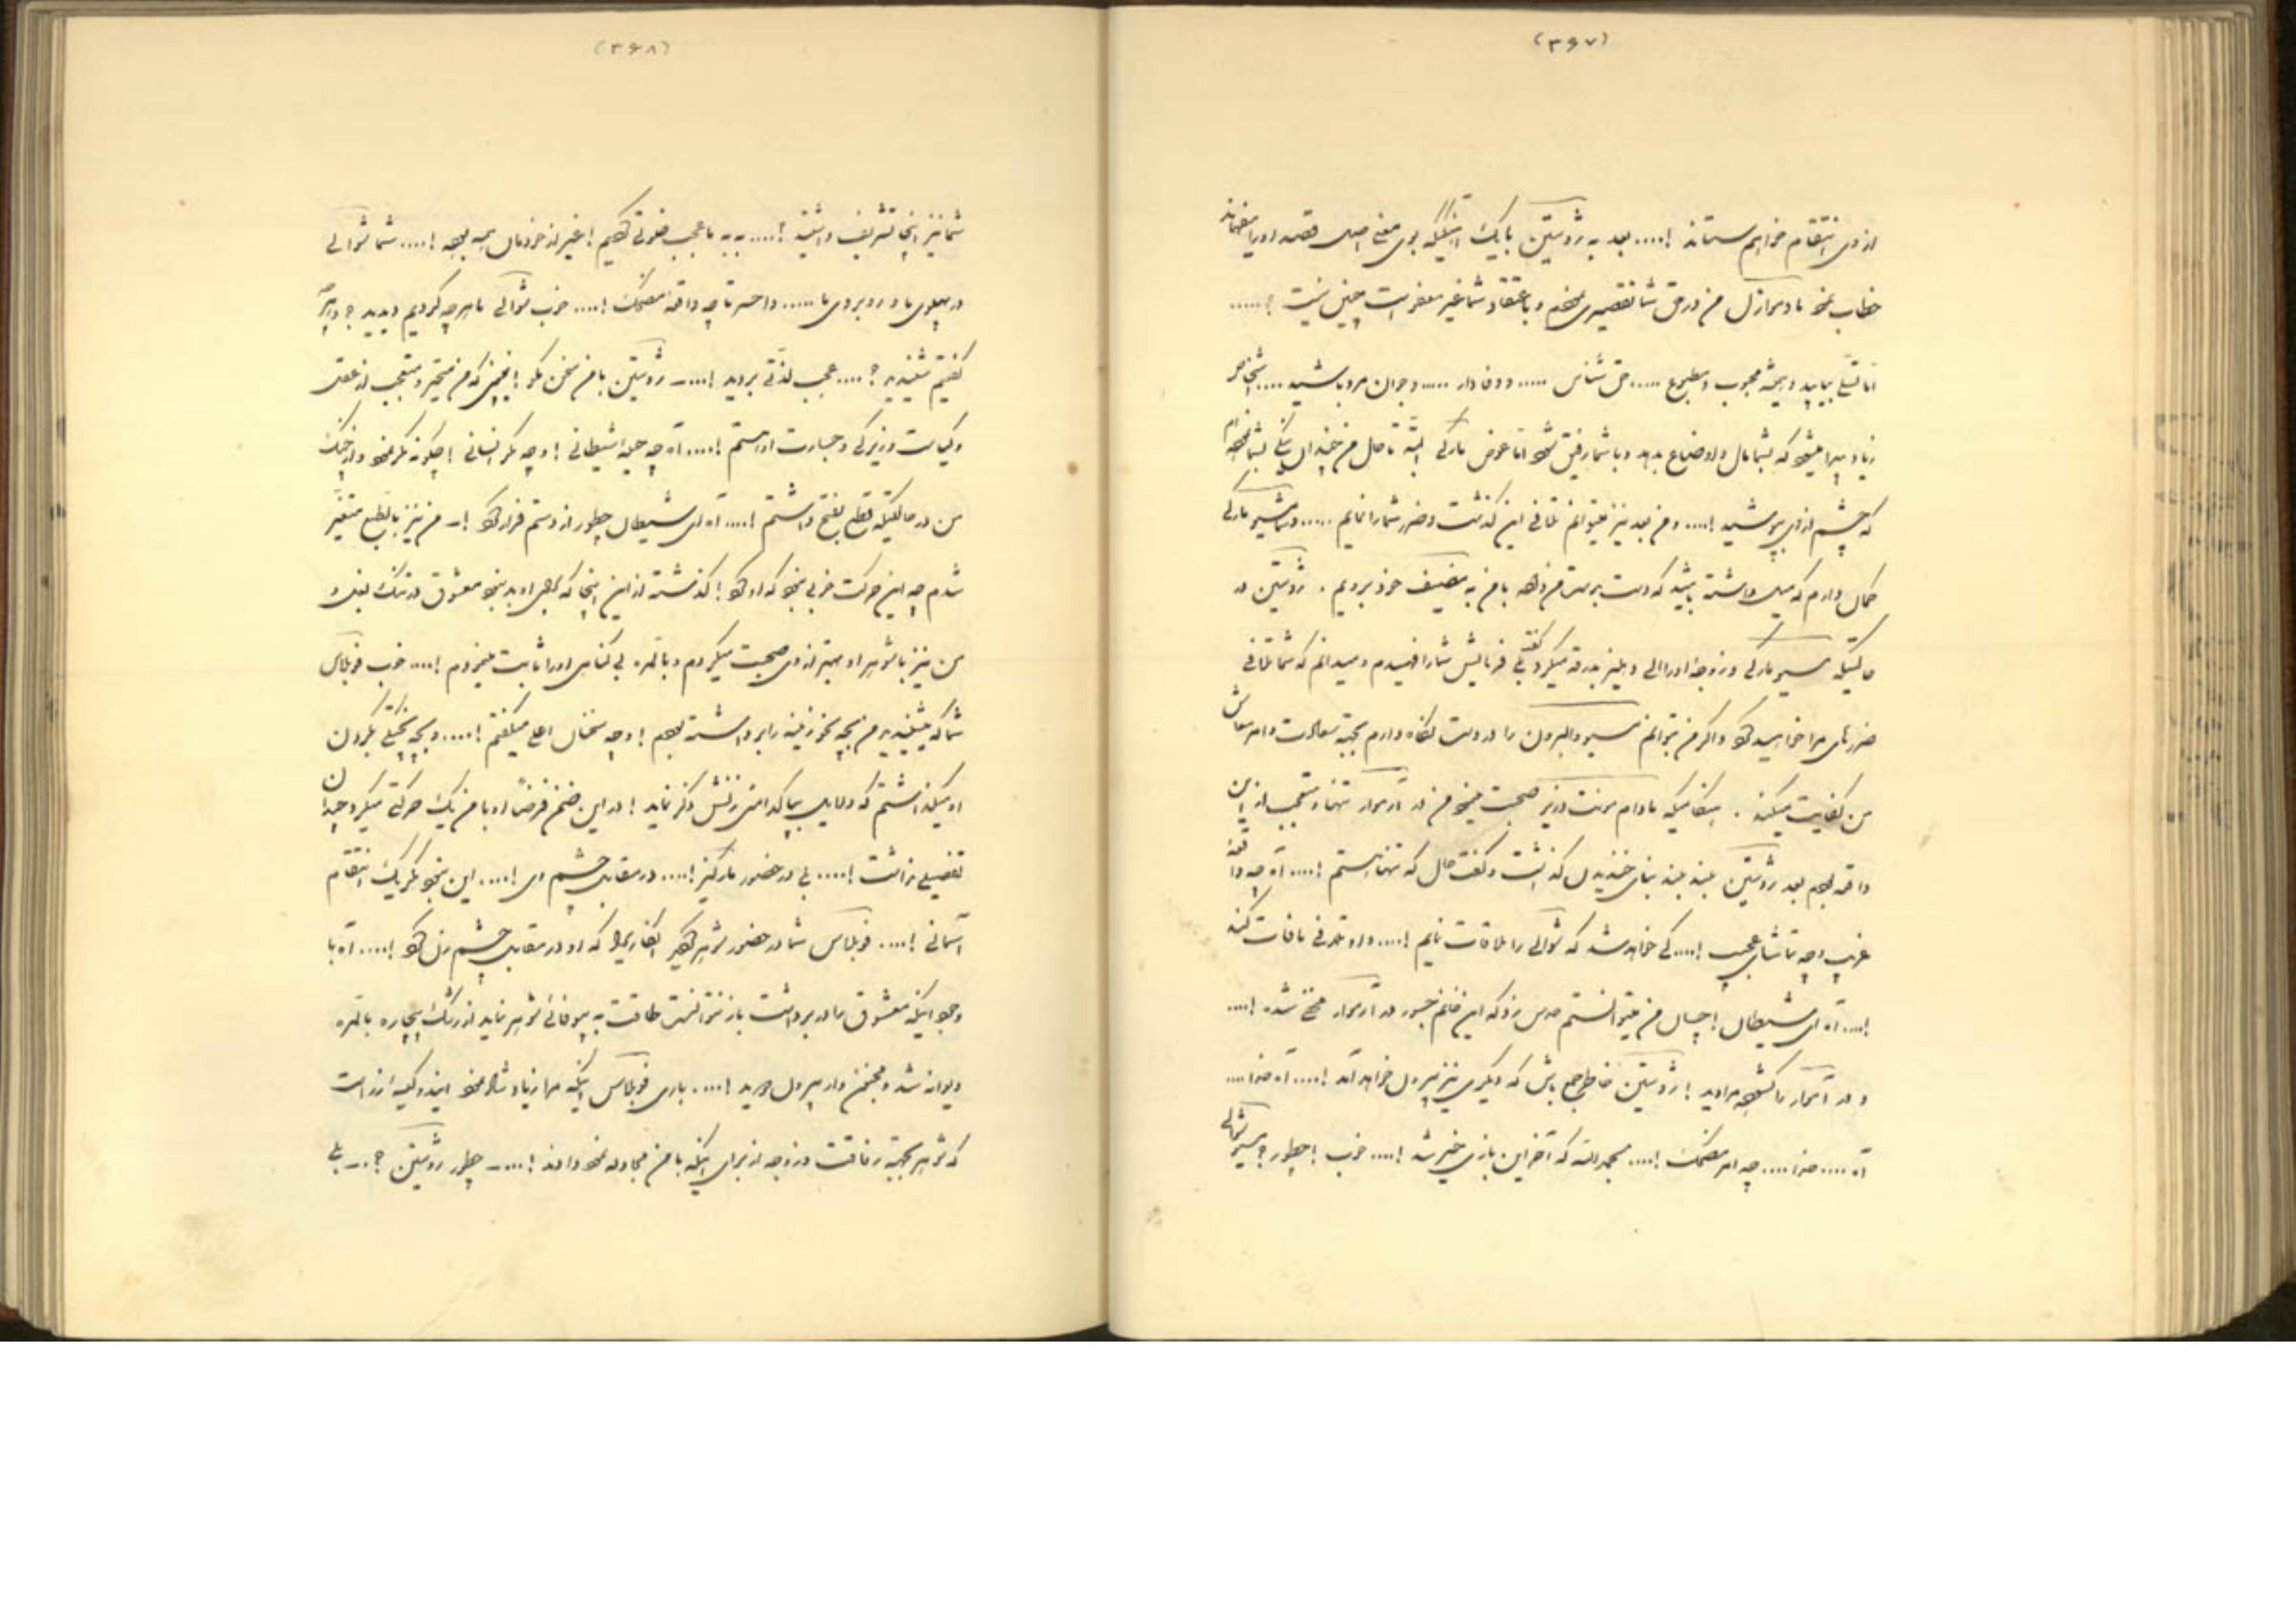 (۳۶۷)
از وی انتقام خواهم ستاند !.... بعد به ژوستین بابیک اینکه بوی معنی اصلی قصد او را بفهماند
خطاب نمود مادموازل من در حق شما تقصیری نمودم و باعتقاد شما غیر معفو است چنین نیست ؟.....
اما تسلی بیابید و همیشه محبوب و مطبوع ..... حق شناس ..... و وفادار ..... و جوان مرد باشید ....
زیاد پیدا میشود که بشما مال و اوضاع بدهد و با شما رفیق شود اما عوض مارکی البته تا حال من چندان نیکی بشما نکرده‌ام
که چشم از وی بپوشید !.... و من بعد نیز میتوانم تلافی این گذشت و ضرر شما را نمایم ..... مسیو مارکی
کمال دارم که میل داشته باشید که دست بر دست من داده با من به ضیافت خود برویم . ژوستین در
حالتیکه مسیو مارکی و زوجهٔ او را الی دهلیز بدرقه میکرد گفت بلی فرمایش شما را فهمیدم و میدانم که شما تلافی
ضررهای مرا خواهید نمود و اگر من بتوانم مسیو دالبرون را در دست نگاه دارم بجهة سعادت و امر معاش
من کفایت میکند . هنگامیکه مادام برنت و زیر صحبت مینمود من در آرموار تنها و متعجب از این
واقعه بودم بعد ژوستین بلند بلند بنای خندیدن گذاشت و گفت حال که تنها هستم !.... آه چه واقعهٔ
غریب و چه تماشای عجیب !.... کی خواهد شد که شوالی را ملاقات نمایم !.... و او تلافی مافات کند
!.... آه ای شیطان ! چسان من میتوانستم حدس زد که این خانم جسور در آرموار مخفی شده !....
و در آرموار را گشوده مرا دید ! ژوستین خاطر جمع باش که دیگری نیز بیرون خواهد آمد !.... آه خدا ....
آه .... خدا .... چه امر مضحک !.... بحمدالله که آخر این بازی خیر شد !.... خوب ! چطور ؟ مسیو شوالی
(۳۶۸)
شما نیز اینجا تشریف داشتید !.... به به ما عجب خلوتی کردیم ! غیر از خودمان همه بودند !.... شما شوالی
در پهلوی ما و روبروی ما ..... واحسرتا چه واقعهٔ مضحک !.... خوب شوالی ما هر چه کردیم دیدید ؟ و هر چه
گفتیم شنیدید ؟.... عجب لذتی بردید !.... ــ ژوستین با من سخن مگو ! بجهة آنکه من متحیر و متعجب از عقل
و کیاست و زیرکی و جسارت او هستم !.... آه چه حیله شیطانی ! و چه مکر انسانی ! چگونه مکر نمود و از چنگ
من در حالتیکه قطع بفتح داشتم !.... آه ای شیطان چطور از دستم فرار کرد ! ــ من نیز بالطبع متغیر
شدم چه این حرکت خوبی نبود که او کرد ! گذشته از این اینجا که جای او بود بنحو معشوق در تنگ بغل و
من نیز با شوهر او بهتر از وی صحبت میکردم و بالمره بی گناهی او را ثابت مینمودم !.... خوب فوبلاس
شما که میشنیدید من بچه نحو زمینه را برداشته بودم ! و چه سخنان اعلی میگفتم !.... و بچه بچگی بگردن
او میگذاشتم که دلایل بپاکدامنی زنش ذکر نماید ! در این ضمن فرضاً او با من یک حرکتی میکرد چندان
تفصیلی نداشت !.... بلی در حضور مارکیز !.... در مقابل چشم وی !.... این نبود مگر یک انتقام
آسمانی !.... فوبلاس شما در حضور شوهر بودید که او در مقابل چشم زن بود !.... آه با
وجود اینکه معشوق را در بر داشت باز نتوانست طاقت به بیوفائی شوهر نماید از رشک بیچاره بالمره
دیوانه شد و بجستن و از بیرون دوید !.... باری فوبلاس اینکه مرا زیاد شاد نمود اینست
که شوهر بجهة رفاقت و زوجه از برای اینکه با من مجادله نمود دادند !.... ــ چطور ژوستین ؟ ــ بلی